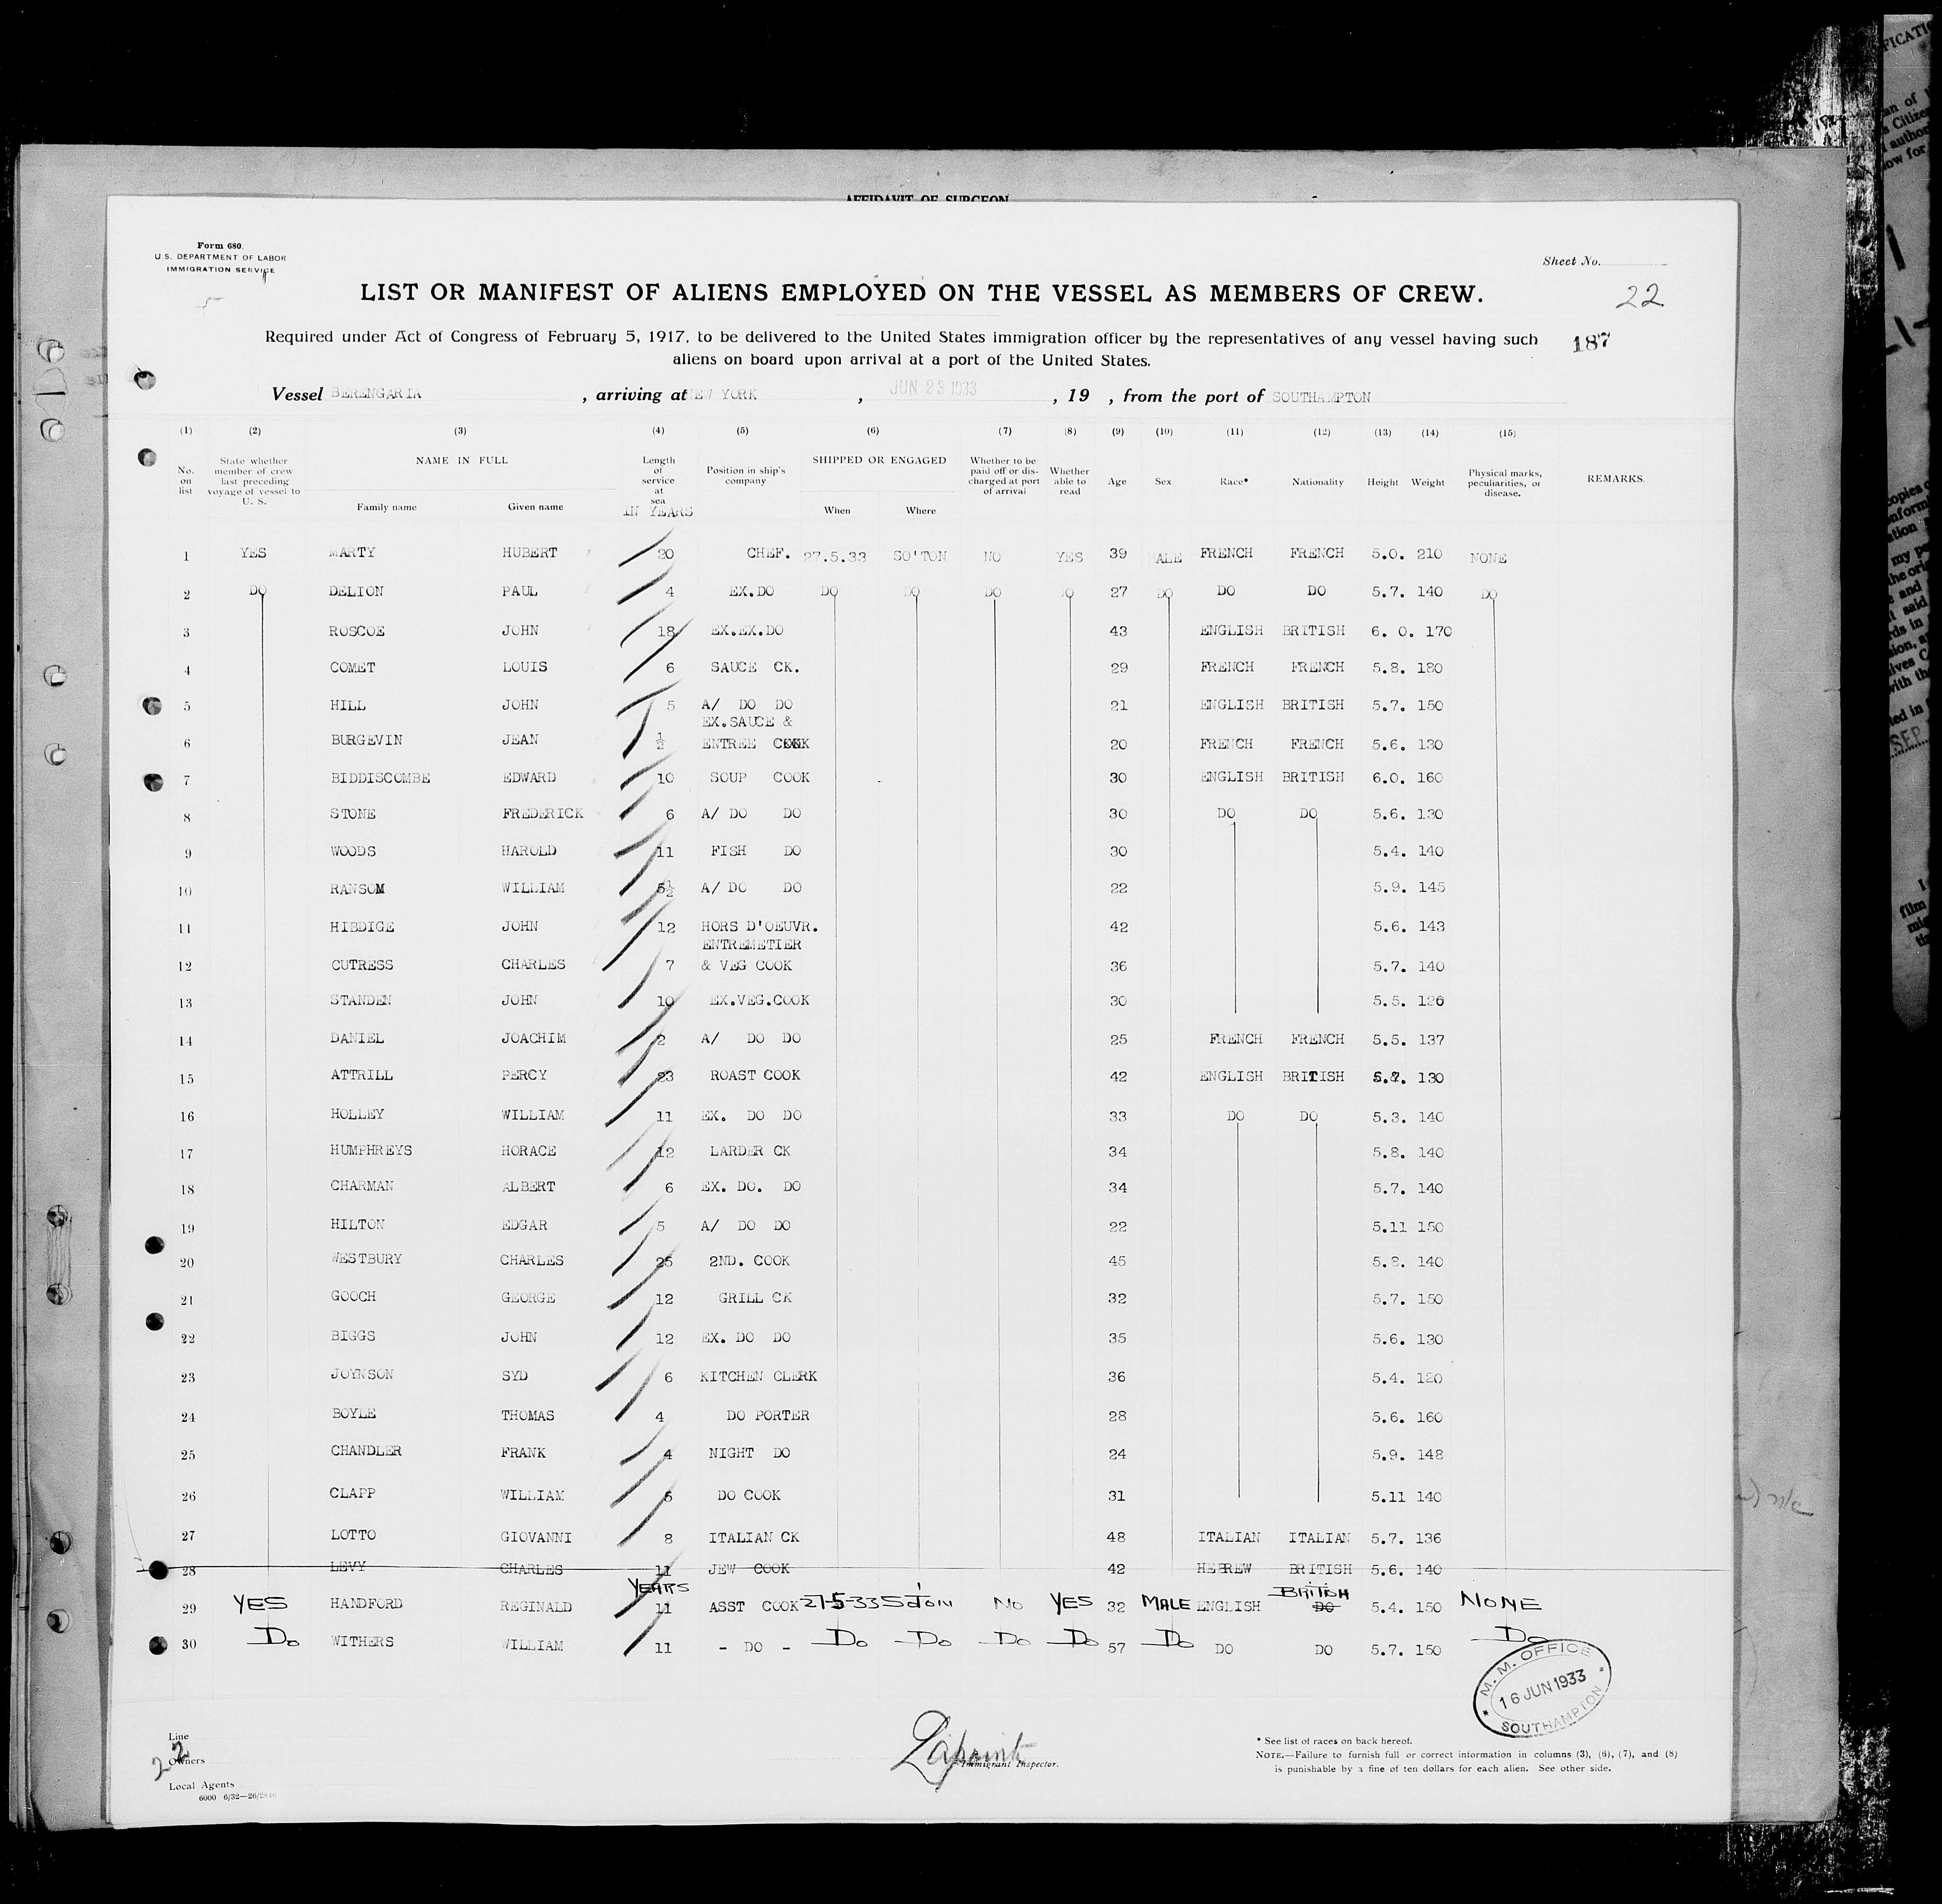 AFFIDAVIT OF SURGEON
Form 680.
U.S. DEPARTMENT OF LABOR
IMMIGRATION SERVICE
Sheet No.
22
LIST OR MANIFEST OF ALIENS EMPLOYED ON THE VESSEL AS MEMBERS OF CREW.
187
Required under Act of Congress of February 5, 1917, to be delivered to the United States immigration officer by the representatives of any vessel having such
aliens on board upon arrival at a port of the United States.
Vessel BERENGARIA , arriving at NEW YORK , JUN 23 1933 , 19 , from the port of SOUTHAMPTON
(1) (2) (3) (4) (5) (6) (7) (8) (9) (10) (11) (12) (13) (14) (15)
No. on list
State whether member of crew last preceding voyage of vessel to U. S.
NAME IN FULL
Family name Given name
Length of service at sea
IN YEARS
Position in ship's company
SHIPPED OR ENGAGED
When Where
Whether to be paid off or discharged at port of arrival
Whether able to read
Age Sex Race* Nationality Height Weight
Physical marks, peculiarities, or disease.
REMARKS.
1 YES MARTY HUBERT 20 CHEF. 27.5.33 SO'TON NO YES 39 MALE FRENCH FRENCH 5.0. 210 NONE
2 DO DELION PAUL 4 EX.DO DO DO DO DO 27 DO DO DO 5.7. 140 DO
3 ROSCOE JOHN 18 EX.EX.DO 43 ENGLISH BRITISH 6. 0. 170
4 COMET LOUIS 6 SAUCE CK. 29 FRENCH FRENCH 5.8. 180
5 HILL JOHN 5 A/ DO DO 21 ENGLISH BRITISH 5.7. 150
EX.SAUCE &
6 BURGEVIN JEAN ½ ENTREE COOK 20 FRENCH FRENCH 5.6. 130
7 BIDDISCOMBE EDWARD 10 SOUP COOK 30 ENGLISH BRITISH 6.0. 160
8 STONE FREDERICK 6 A/ DO DO 30 DO DO 5.6. 130
9 WOODS HAROLD 11 FISH DO 30 5.4. 140
10 RANSOM WILLIAM 5½ A/ DO DO 22 5.9. 145
11 HIBDIGE JOHN 12 HORS D'OEUVR. 42 5.6. 143
ENTREMETIER
12 CUTRESS CHARLES 7 & VEG COOK 36 5.7. 140
13 STANDEN JOHN 10 EX.VEG.COOK 30 5.5. 126
14 DANIEL JOACHIM 2 A/ DO DO 25 FRENCH FRENCH 5.5. 137
15 ATTRILL PERCY 23 ROAST COOK 42 ENGLISH BRITISH 130
16 HOLLEY WILLIAM 11 EX. DO DO 33 DO DO 5.3. 140
17 HUMPHREYS HORACE 12 LARDER CK 34 5.8. 140
18 CHARMAN ALBERT 6 EX. DO. DO 34 5.7. 140
19 HILTON EDGAR 5 A/ DO DO 22 5.11 150
20 WESTBURY CHARLES 25 2ND. COOK 45 5.8. 140
21 GOOCH GEORGE 12 GRILL CK 32 5.7. 150
22 BIGGS JOHN 12 EX. DO DO 35 5.6. 130
23 JOYNSON SYD 6 KITCHEN CLERK 36 5.4. 120
24 BOYLE THOMAS 4 DO PORTER 28 5.6. 160
25 CHANDLER FRANK 4 NIGHT DO 24 5.9. 148
26 CLAPP WILLIAM DO COOK 31 5.11 140
27 LOTTO GIOVANNI 8 ITALIAN CK 48 ITALIAN ITALIAN 5.7. 136
28 LEVY CHARLES 11 JEW COOK 42 HEBREW BRITISH 5.6. 140
YEARS BRITISH
29 YES HANDFORD REGINALD 11 ASST COOK 27-5-33 S'TON NO YES 32 MALE ENGLISH DO 5.4. 150 NONE
30 Do WITHERS WILLIAM 11 - DO - Do Do Do Do 57 Do DO DO 5.7. 150 Do
M. M. OFFICE
16 JUN 1933
SOUTHAMPTON
Line
22
Owners
Local Agents
6000 6/32—26/
Immigrant Inspector.
* See list of races on back hereof.
NOTE.—Failure to furnish full or correct information in columns (3), (6), (7), and (8)
is punishable by a fine of ten dollars for each alien. See other side.